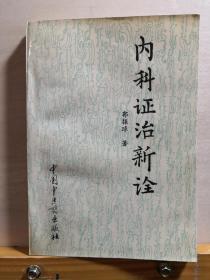 内科证治新诠
郭振球 著
中国中医药出版社